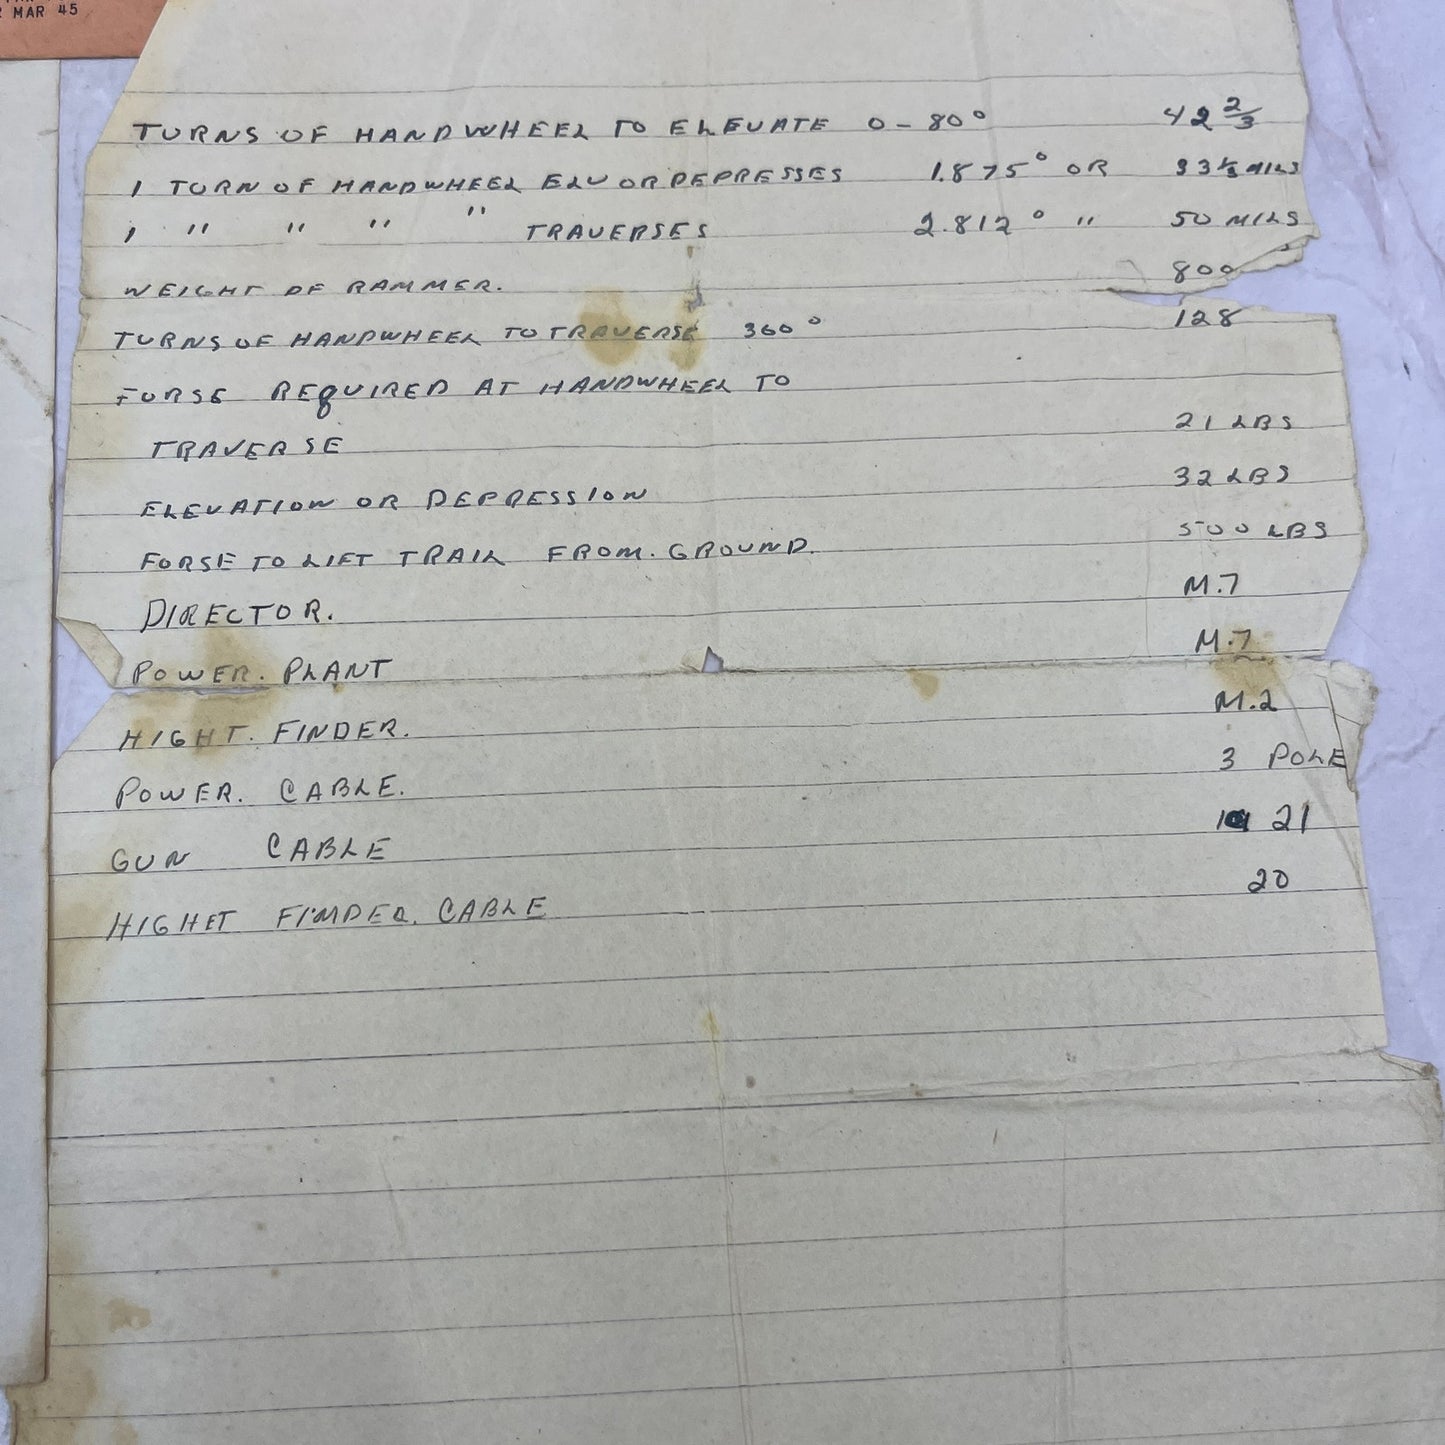 MAR 45
TURNS OF HANDWHEEL TO ELEVATE 0 - 80° 42 2/3
1 TURN OF HANDWHEEL ELV OR DEPRESSES 1.875° OR 33 1/3 MILS
1 " " " " TRAVERSES 2.812° " 50 MILS
WEIGHT OF RAMMER. 800
TURNS OF HANDWHEEL TO TRAVERSE 360° 128
FORSE REQUIRED AT HANDWHEEL TO
TRAVERSE 21 LBS
ELEVATION OR DEPRESSION 32 LBS
FORSE TO LIFT TRAIL FROM. GROUND. 500 LBS
DIRECTOR. M.7
POWER. PLANT M.7
HIGHT. FINDER. M.2
POWER. CABLE. 3 POLE
GUN CABLE 21
HIGHET FINDER. CABLE 20